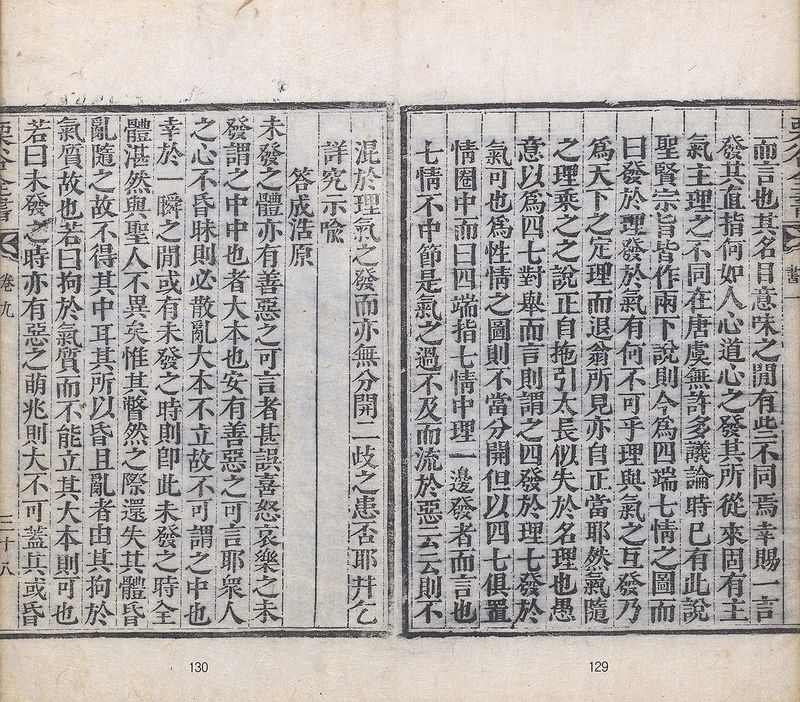 栗谷全書
書一
而言也其名目意味之間有些不同焉幸賜一言
發其直指何如人心道心之發其所從來固有主
氣主理之不同在唐虞無許多議論時已有此說
聖賢宗旨皆作兩下說則今爲四端七情之圖而
曰發於理發於氣有何不可乎理與氣之互發乃
爲天下之定理而退翁所見亦自正當耶然氣隨
之理乘之之說正自拖引太長似失於名理也愚
意以爲四七對舉而言則謂之四發於理七發於
氣可也爲性情之圖則不當分開但以四七俱置
情圈中而曰四端指七情中理一邊發者而言也
七情不中節是氣之過不及而流於惡云云則不
129
混於理氣之發而亦無分開二歧之患否耶幷乞
詳究示喩
答成浩原
未發之體亦有善惡之可言者甚誤喜怒哀樂之未
發謂之中中也者大本也安有善惡之可言耶衆人
之心不昏昧則必散亂大本不立故不可謂之中也
幸於一瞬之間或有未發之時則卽此未發之時全
體湛然與聖人不異矣惟其瞥然之際還失其體昏
亂隨之故不得其中耳其所以昏且亂者由其拘於
氣質故也若曰拘於氣質而不能立其大本則可也
若曰未發之時亦有惡之萌兆則大不可蓋其或昏
栗谷全書
卷九
三十八
130